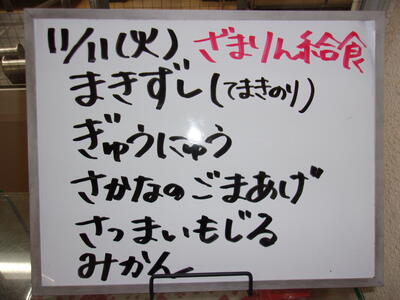 11/11(火) ざまりん給食
まきずし(てまきのり)
ぎゅうにゅう
さかなのごまあげ
さつまいもじる
みかん